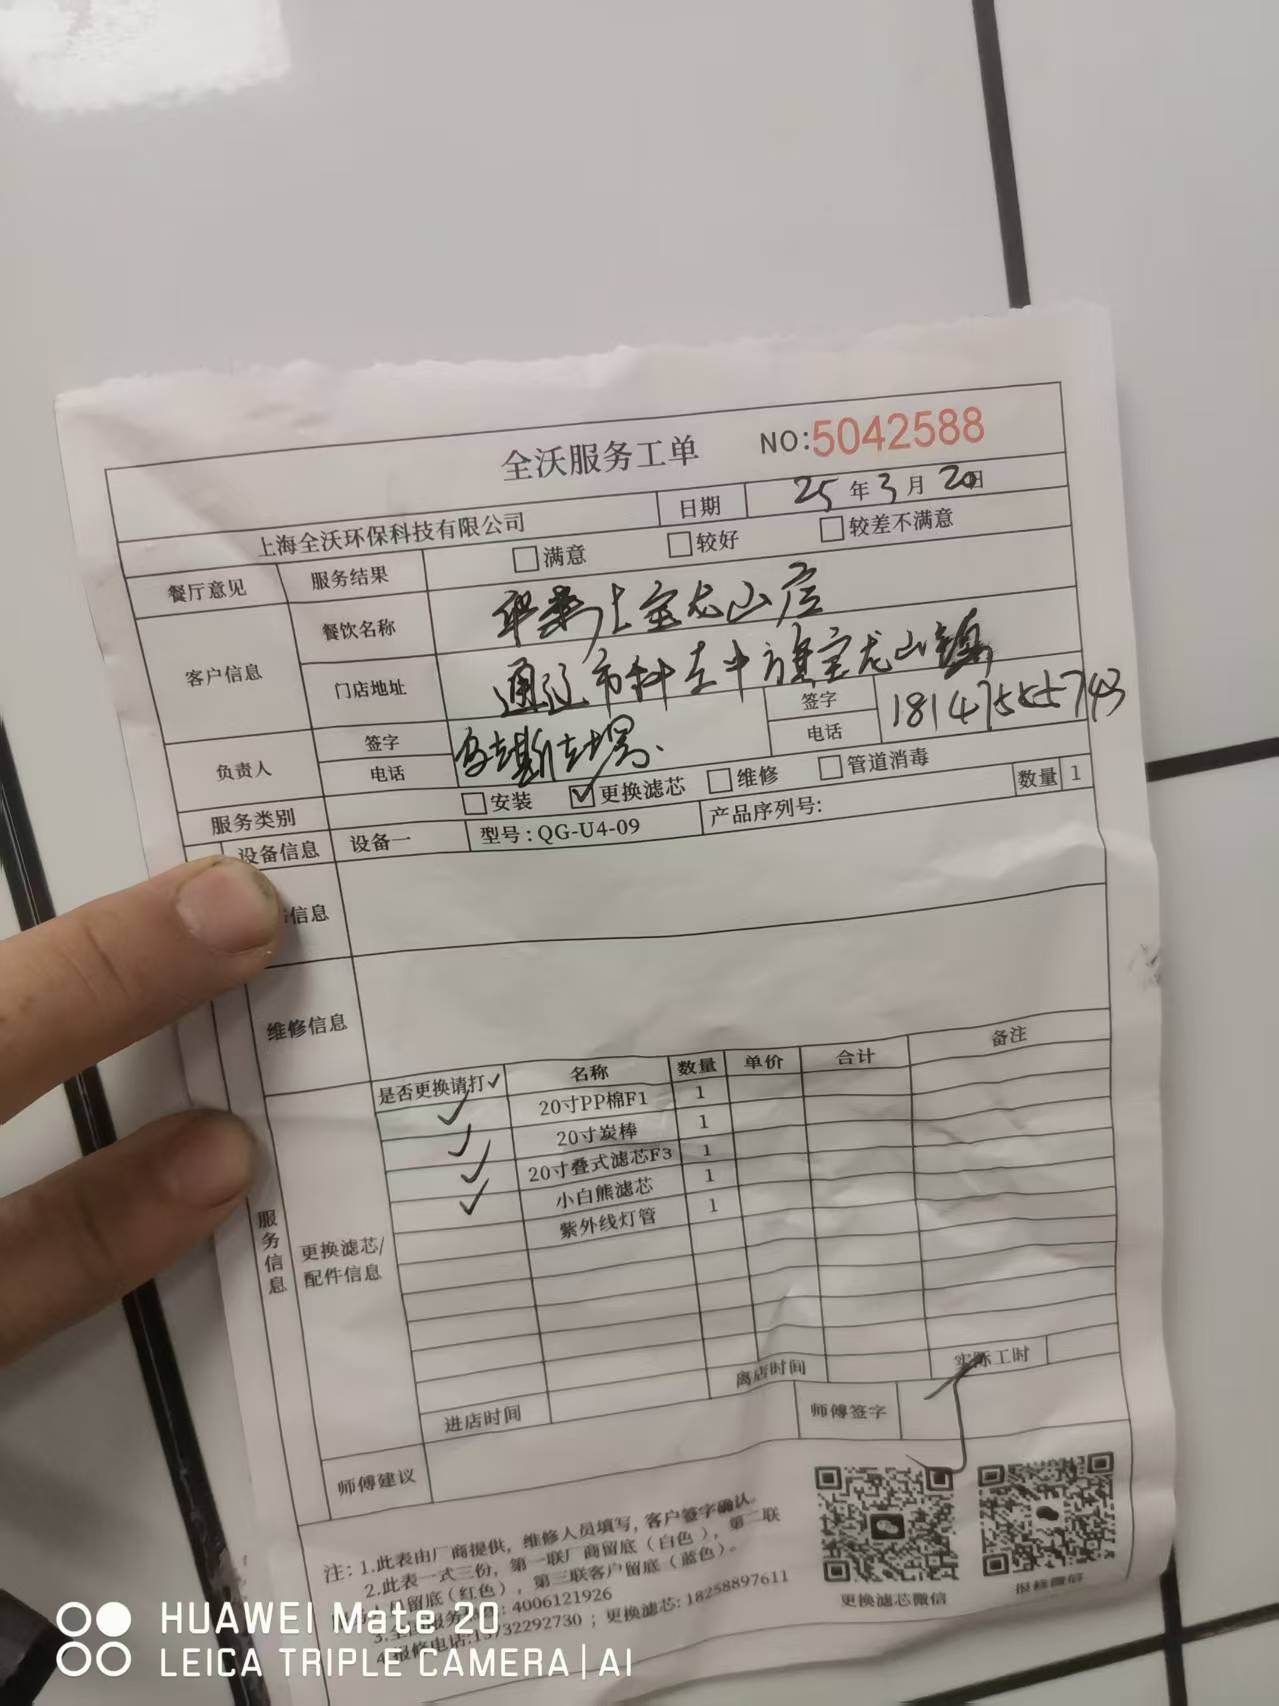 全沃服务工单 NO:5042588
上海全沃环保科技有限公司 日期 25年3月20日
餐厅意见 服务结果 □满意 □较好 □较差不满意
客户信息 餐饮名称 华莱士宝龙山店
门店地址 通辽市科左中旗宝龙山镇
负责人 签字 电话 签字 电话 18147555743
服务类别 □安装 ☑更换滤芯 □维修 □管道消毒
设备信息 设备一 型号:QG-U4-09 产品序列号: 数量 1
信息
维修信息
服务信息
更换滤芯/
配件信息
是否更换请打✓ 名称 数量 单价 合计 备注
✓ 20寸PP棉F1 1
✓ 20寸炭棒 1
✓ 20寸叠式滤芯F3 1
✓ 小白熊滤芯 1
紫外线灯管 1
进店时间 离店时间 实际工时
师傅建议 师傅签字
注: 1.此表由厂商提供，维修人员填写，客户签字确认。
2.此表一式三份，第一联厂商留底（白色），第二联
留底（红色），第三联客户留底（蓝色）。
4006121926
4.报修电话:15732292730；更换滤芯:18258897611
更换滤芯微信 报修微信
HUAWEI Mate 20
LEICA TRIPLE CAMERA | AI